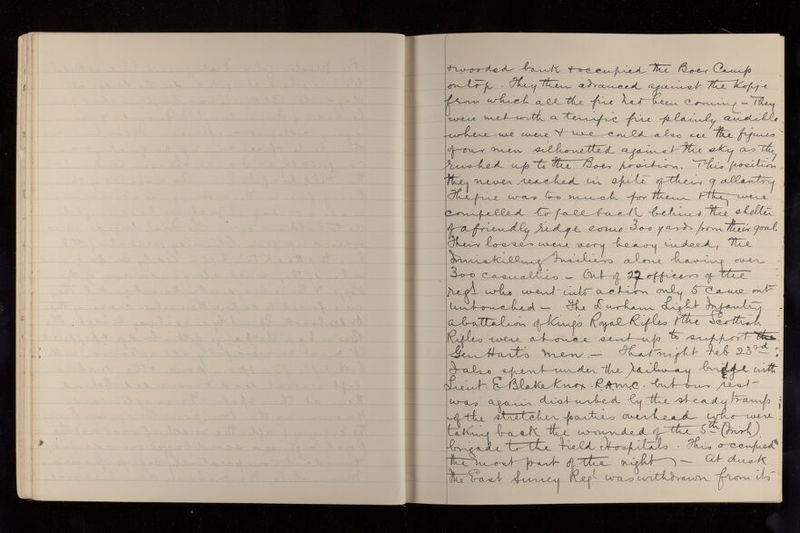 & wooded bank & occupied the Boer Camp
on top. They then advanced against the Kopje
from which all the fire had been coming – They
were met with a terrific fire plainly audible
where we were & we could also see the figures
of our men silhouetted against the sky as they
rushed up to the Boer position. This position
they never reached in spite of their gallantry
The fire was too much for them & they were
compelled to fall back behind the shelter
of a friendly ridge some 300 yards from their goal.
Their losses were very heavy indeed, the
Inniskilling Fusiliers alone having over
300 casualties – Out of 22 officers of the
regt who went into action only 5 came out
untouched – The Durham Light Infantry
a battalion of King's Royal Rifles & the Scottish
Rifles were at once sent up to support the
Gen Hart's men. – That night Feb 23rd
I also spent under the railway bridge with
Lieut. E Blake Knox. R.A.M.C. but our rest
was again disturbed by the steady tramp
of the stretcher parties overhead who were
taking back the wounded of the 5th (Irish)
brigade to the Field Hospitals. This occupied
the most part of the night – At dusk
the East Surrey Regt was withdrawn from its